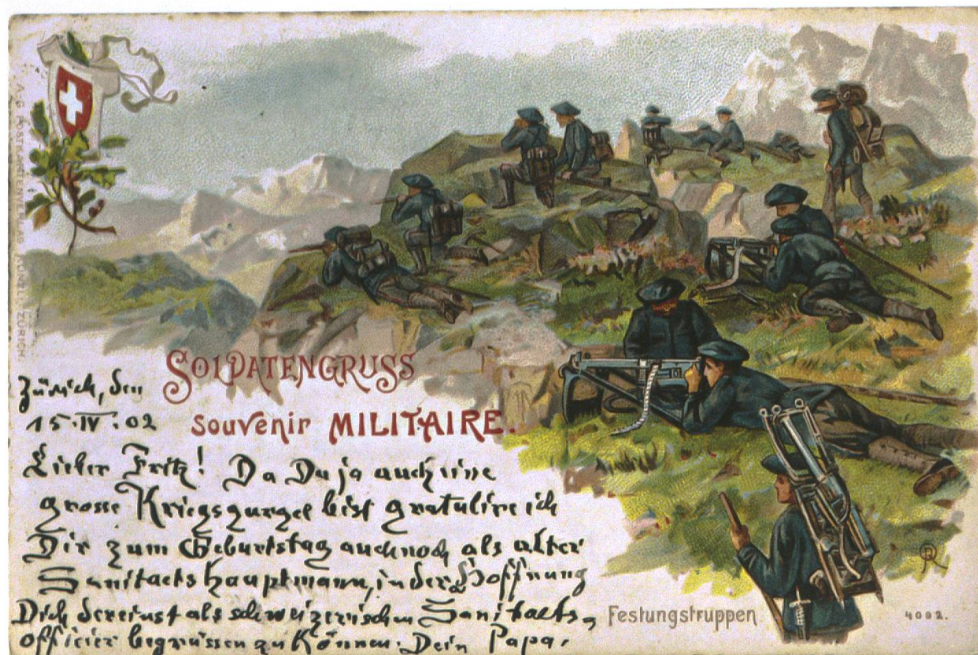 SOLDATENGRUSS
souvenir MILITAIRE.
Zürich, den
15.IV.02
Lieber Fritz! Da Du ja auch eine
grosse Kriegsgurgel bist gratulire ich
Dir zum Geburtstag auch noch als alter
Sanitaetshauptmann, in der Hoffnung
Dich dereinst als schweizerischen Sanitaets,
officier begrüssen zu können. Dein Papa.
Festungstruppen
4002.